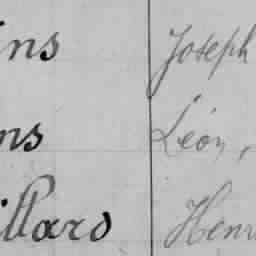 ins Joseph
ns Léon,
illard Henri